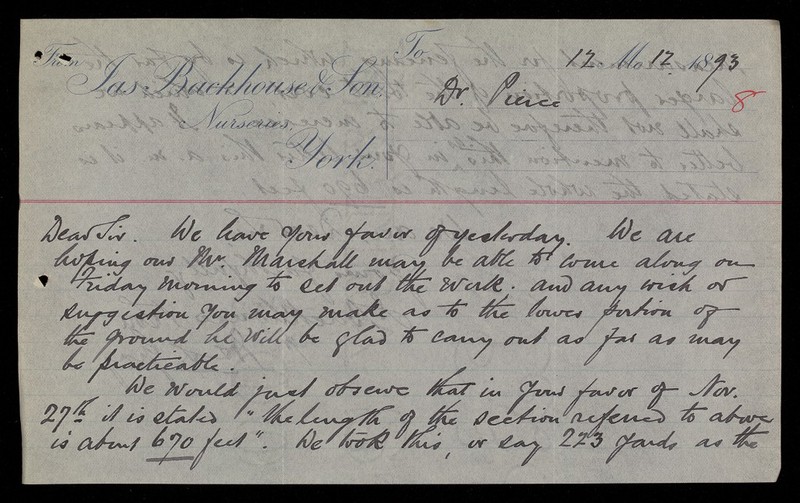 From
To
12 Mo. 12 1893
Jas. Backhouse & Son,
Dr. Pierce
8
Nurseries,
York.
Dear Sir. We have your favor of yesterday. We are
hoping our Mr. Marshall may be able to come along on
Friday morning to set out the work. and any wish or
suggestion you may make as to the lower portion of
the ground he will be glad to carry out as far as may
be practicable.
We would just observe that in your favor of Nov.
27th it is stated "the length of the section referred to above
is about 670 feet". We took this, or say 223 yards as the